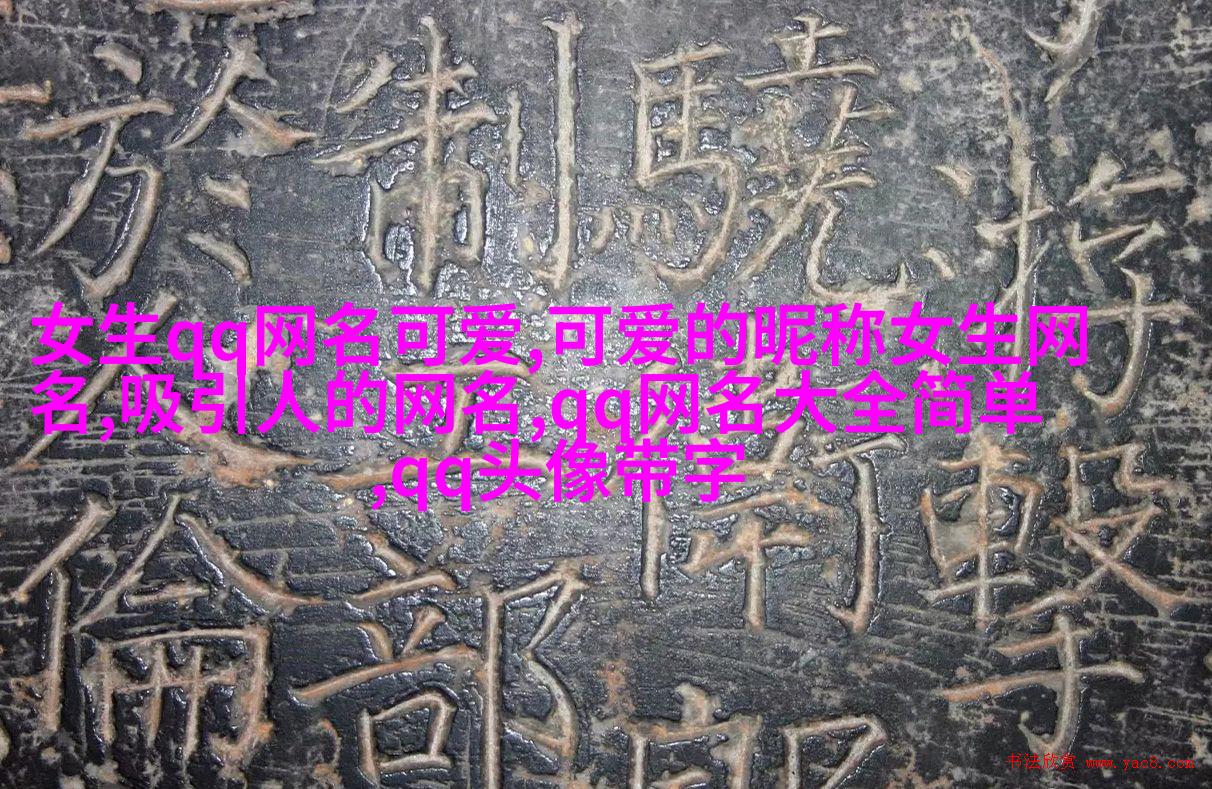 女生qq网名可爱,可爱的昵称女生网
名,吸引人的网名,qq网名大全简单
,qq头像带字
游擊
驍
制部
於倫
书法欣赏 www.yac8.com